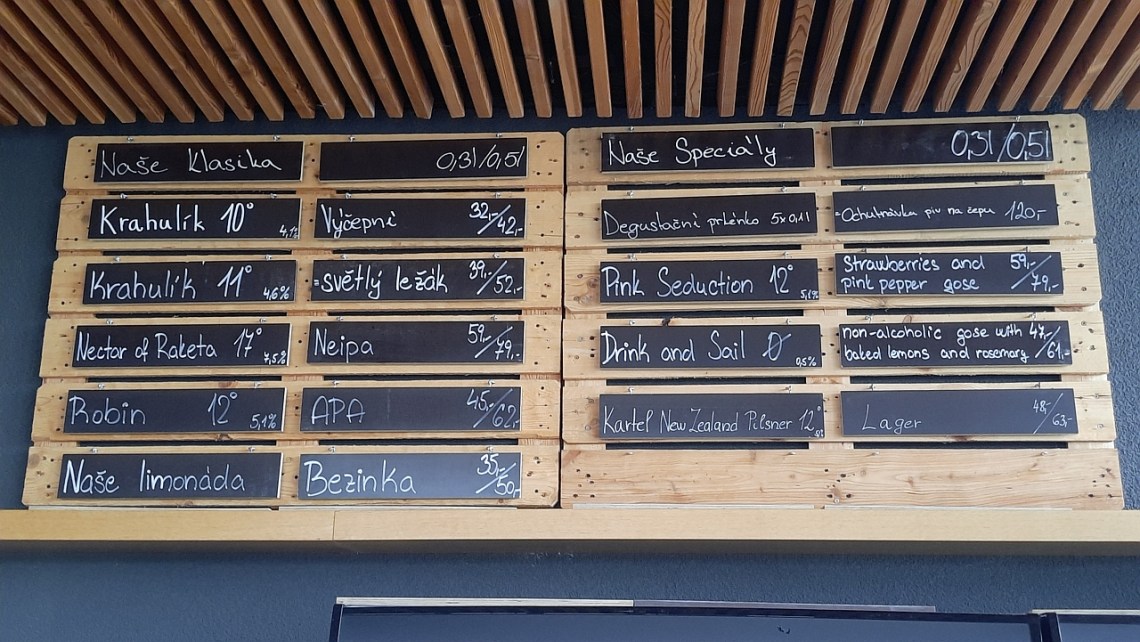 Naše Klasika 0,3l/0,5l
Krahulík 10° 4,1% Výčepní 32,-/42,-
Krahulík 11° 4,6% =světlý ležák 39,-/52,-
Nectar of Raketa 17° 7,5% Neipa 59,-/79,-
Robin 12° 5,1% APA 45,-/62,-
Naše limonáda Bezinka 35,-/50,-
Naše Speciály 0,3l/0,5l
Degustační prkénko 5x0,1l =Ochutnávka piv na čepu 120,-
Pink Seduction 12° 5,1% Strawberries and
pink pepper gose 59,-/79,-
Drink and Sail 0° 0,5% non-alcoholic gose with
baked lemons and rosemary 47,-/61,-
Kartel New Zealand Pilsner 12° Lager 48,-/63,-